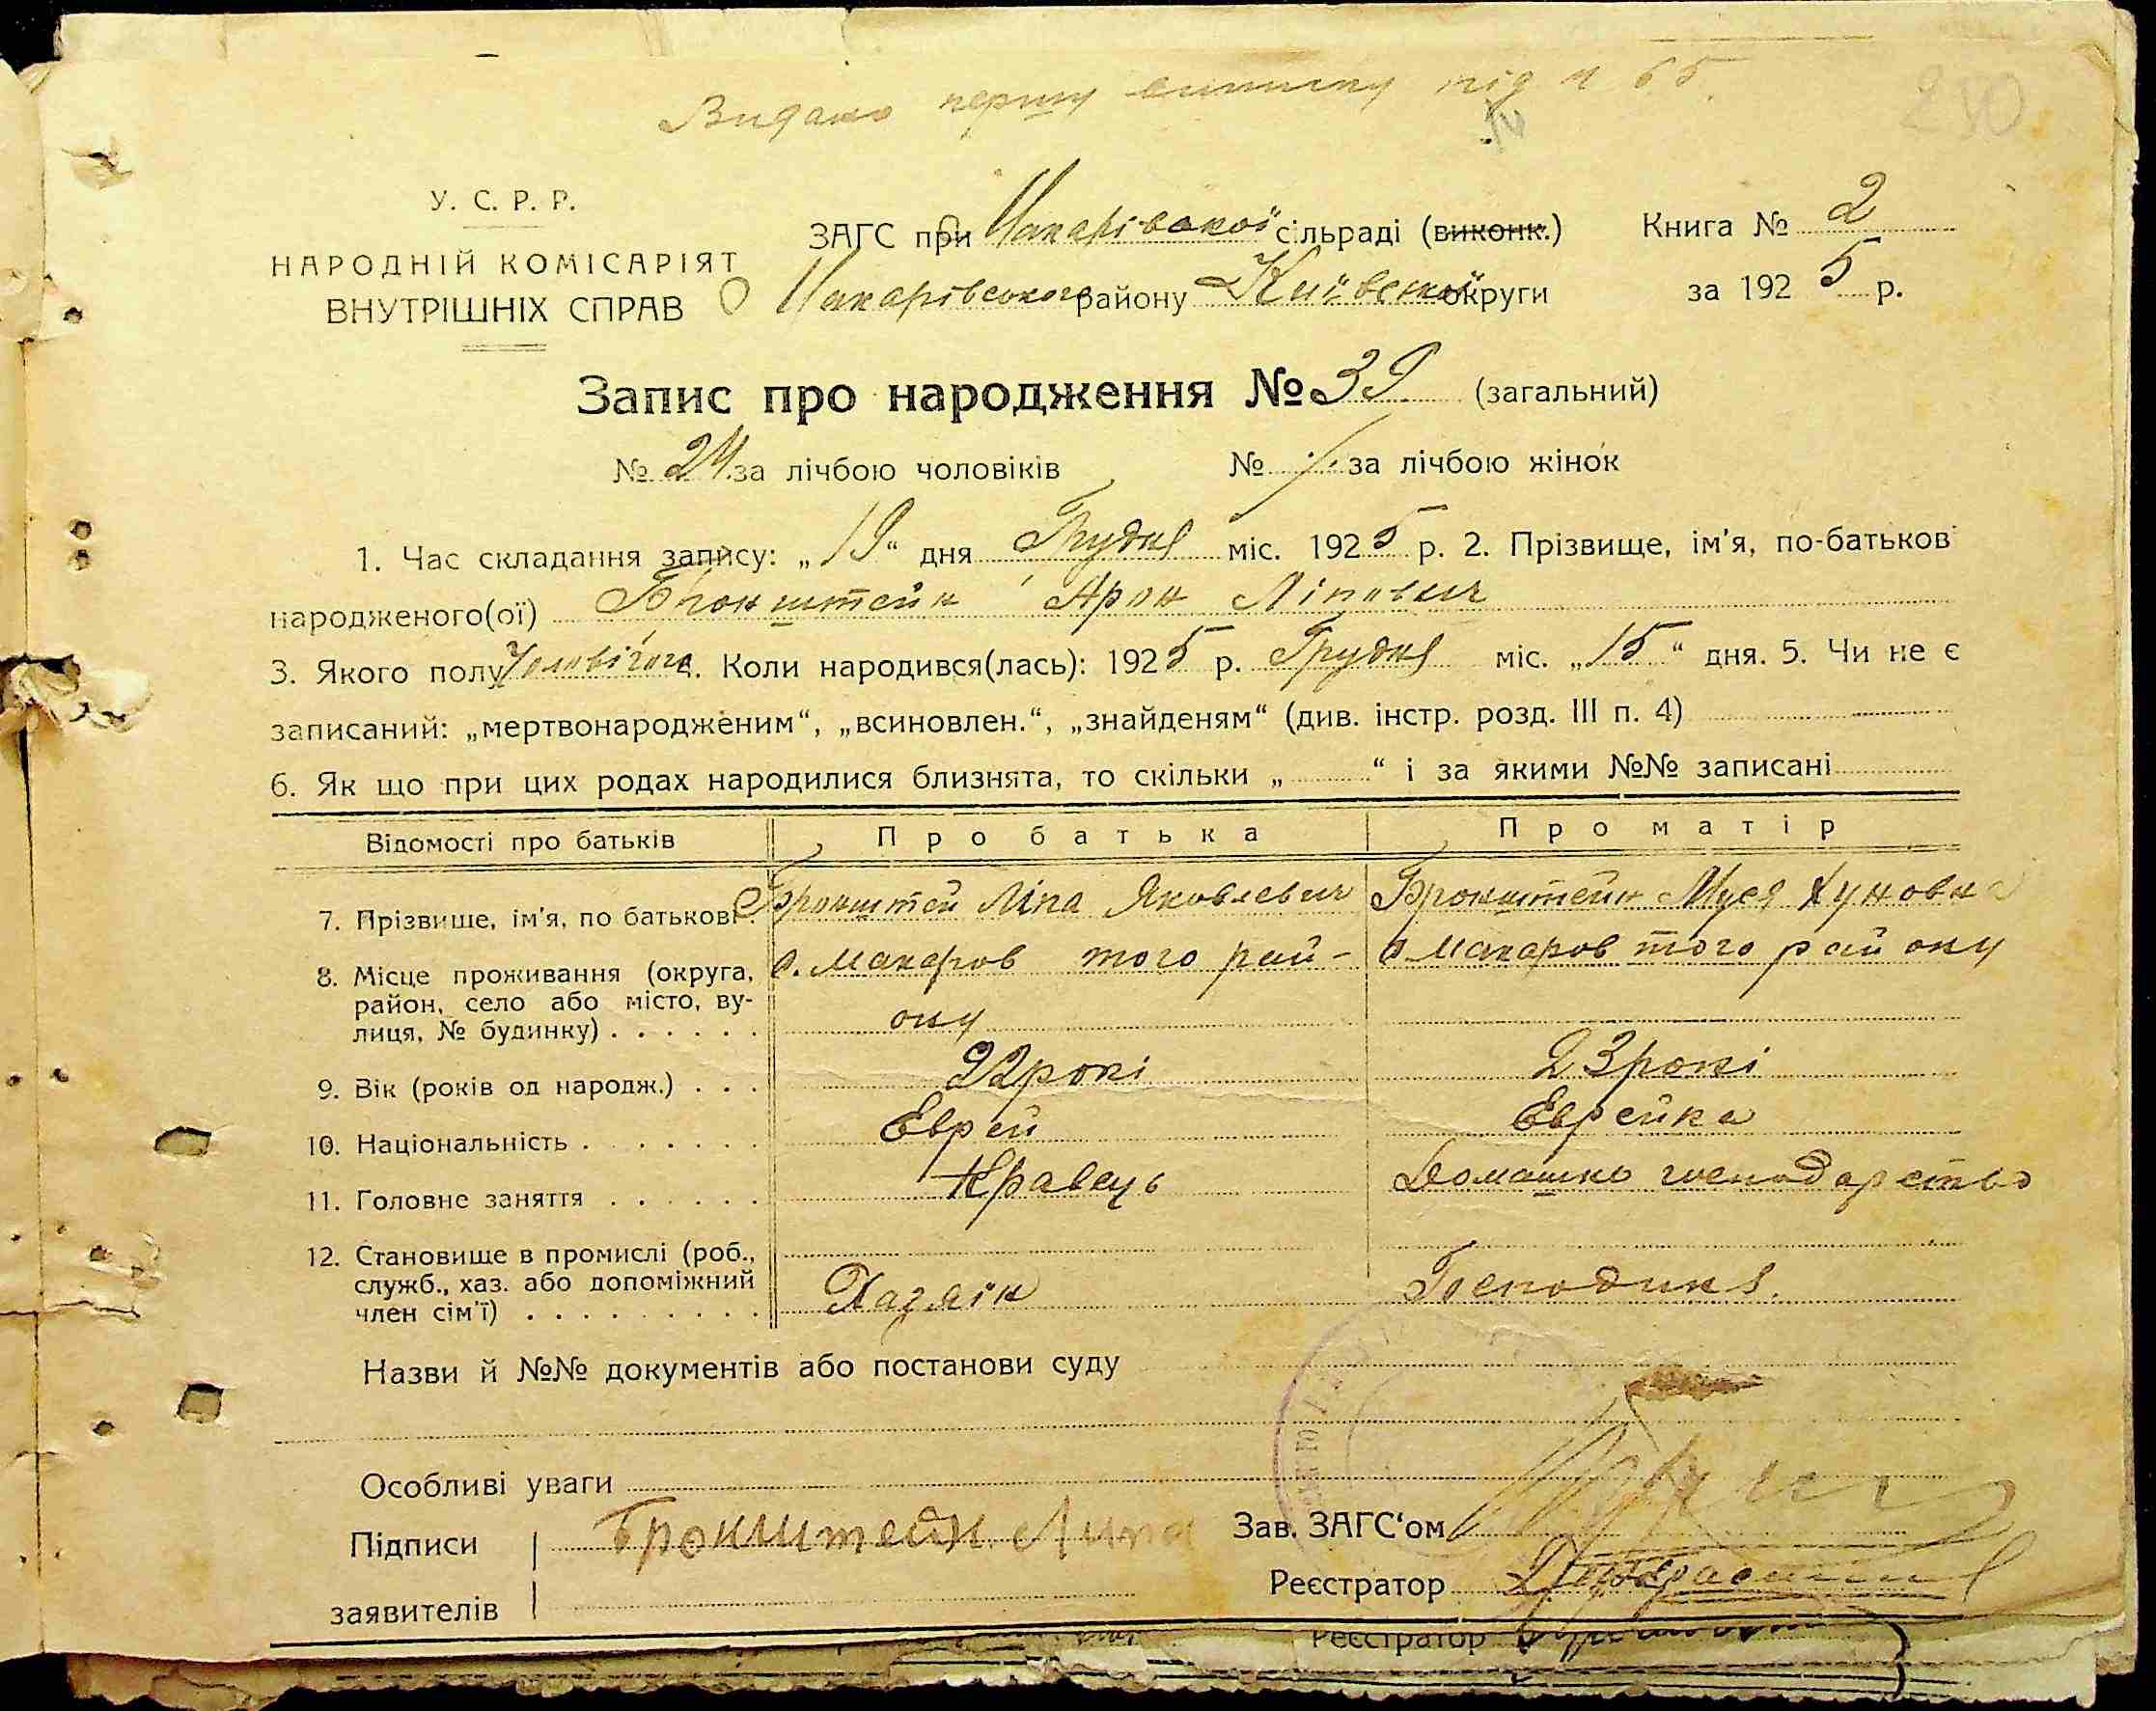 Видано першу виписку під № 65.
250
У. С. Р. Р.
НАРОДНІЙ КОМІСАРІЯТ
ВНУТРІШНІХ СПРАВ
ЗАГС при Макарівської сільраді (виконк.) Книга № 2
Макарівського району Київської округи за 1925 р.
Запис про народження № 39 (загальний)
№ 24 за лічбою чоловіків № за лічбою жінок
1. Час складання запису: „19“ дня Грудня міс. 1925 р. 2. Прізвище, ім'я, по-батькові
народженого(ої) Бронштейн Арон Ліпович
3. Якого полу Чоловічого 4. Коли народився(лась): 1925 р. Грудня міс. „15“ дня. 5. Чи не є
записаний: „мертвонародженим“, „всиновлен.“, „знайденям“ (див. інстр. розд. III п. 4)
6. Як що при цих родах народилися близнята, то скільки „ “ і за якими №№ записані
Відомості про батьків Про батька Про матір
7. Прізвище, ім'я, по батькові. Бронштей Ліпа Яковлевич Бронштейн Муся Хуновна
8. Місце проживання (округа, м. Макаров того рай- м. Макаров того району
район, село або місто, ву-
лиця, № будинку) . . . . . . ону
9. Вік (років од народж.) . . . 22 рокі 23 рокі
10. Національність . . . . . . . Еврей Еврейка
11. Головне заняття . . . . . . Кравець Домашнє господарство
12. Становище в промислі (роб.,
служб., хаз. або допоміжний
член сім'ї) . . . . . . . . . Хазяін Господиня.
Назви й №№ документів або постанови суду
Особливі уваги
Підписи Бронштейн Липа Зав. ЗАГС'ом
Реєстратор
заявителів
Реєстратор